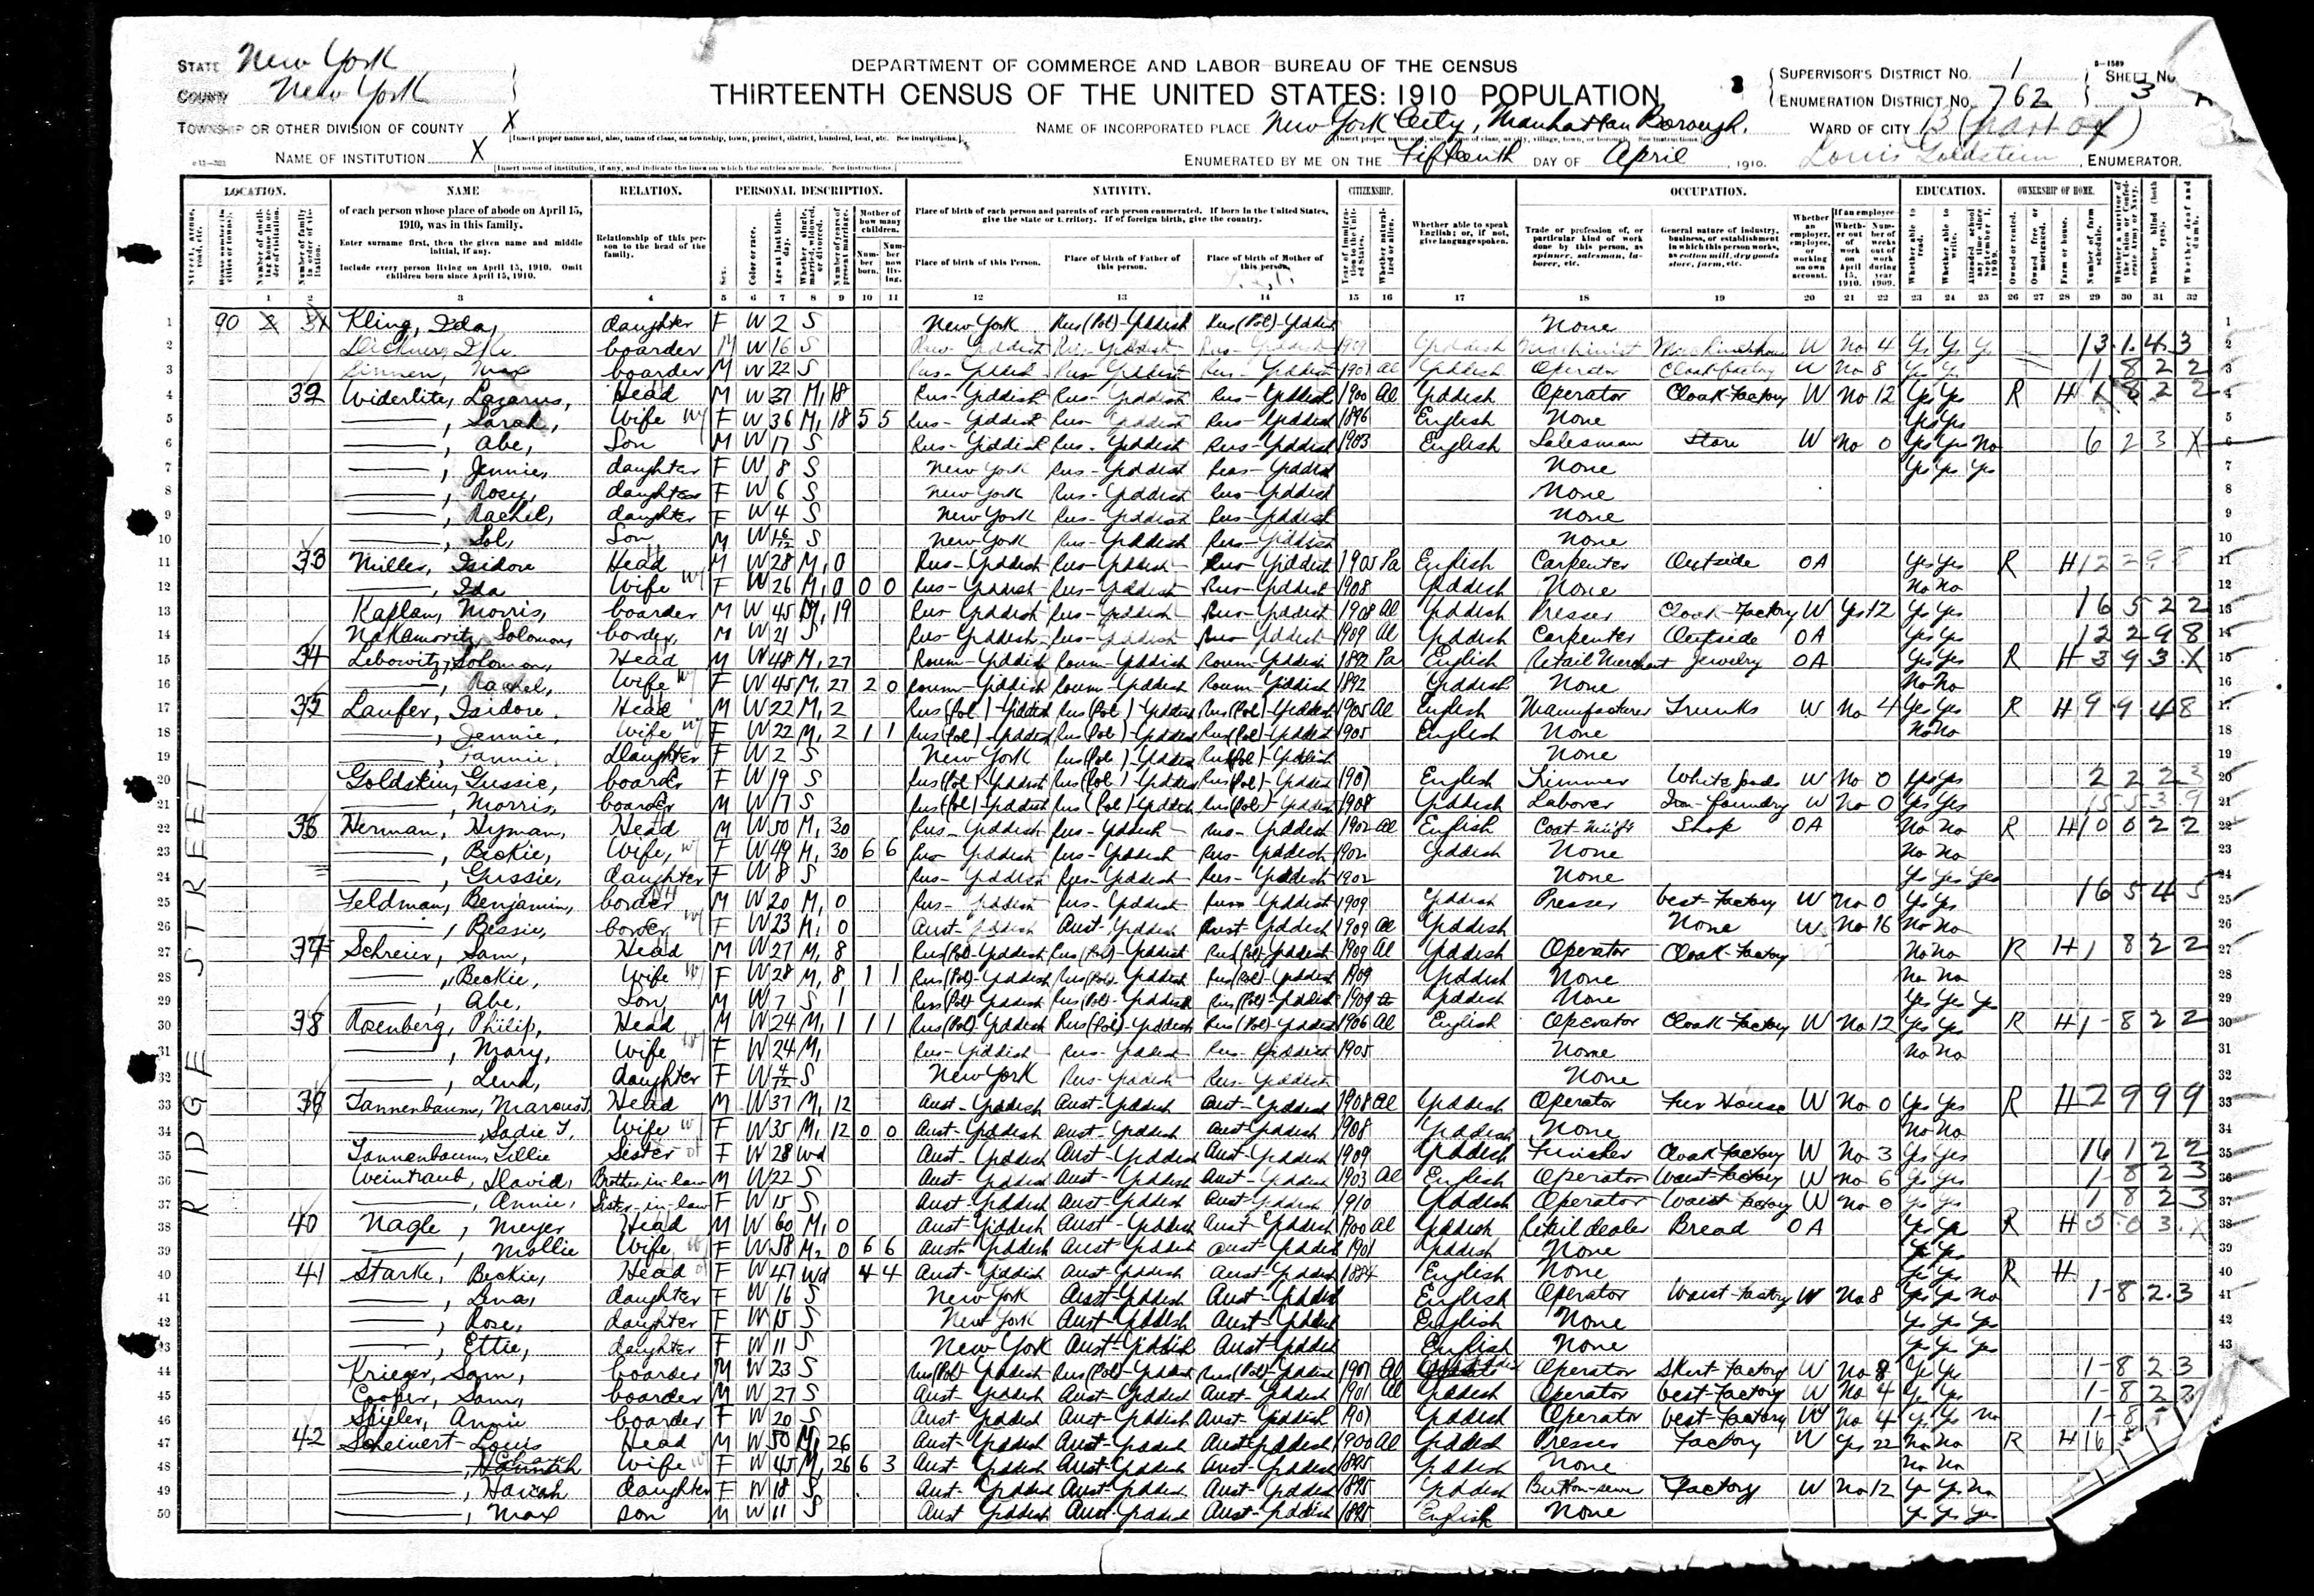 STATE New York
COUNTY New York
TOWNSHIP OR OTHER DIVISION OF COUNTY X
NAME OF INSTITUTION X
DEPARTMENT OF COMMERCE AND LABOR-BUREAU OF THE CENSUS
THIRTEENTH CENSUS OF THE UNITED STATES: 1910 POPULATION
NAME OF INCORPORATED PLACE New York City, Manhattan Borough.
ENUMERATED BY ME ON THE Fifteenth DAY OF April, 1910. Louis Goldstein, ENUMERATOR.
SUPERVISOR'S DISTRICT No. 1
ENUMERATION DISTRICT No. 762
SHEET No. 3
WARD OF CITY 13 (part of)
LOCATION. NAME RELATION. PERSONAL DESCRIPTION. NATIVITY. CITIZENSHIP. OCCUPATION. EDUCATION. OWNERSHIP OF HOME.
of each person whose place of abode on April 15, 1910, was in this family.
Enter surname first, then the given name and middle initial, if any.
Include every person living on April 15, 1910. Omit children born since April 15, 1910.
Relationship of this person to the head of the family.
Place of birth of each person and parents of each person enumerated. If born in the United States, give the state or territory. If of foreign birth, give the country.
Place of birth of this Person. Place of birth of Father of this person. Place of birth of Mother of this person.
Whether able to speak English; or, if not, give language spoken.
Trade or profession of, or particular kind of work done by this person, as spinner, salesman, laborer, etc.
General nature of industry, business, or establishment in which this person works, as cotton mill, dry goods store, farm, etc.
RIDGE STREET
1 90 Kling, Ida, daughter F W 2 S New York Rus (Pol)-Yiddish Rus (Pol)-Yiddish None
2 boarder M W 16 S Rus-Yiddish Rus-Yiddish Rus-Yiddish Yiddish Machinist W No 4 Yes Yes
3 Max boarder M W 22 S Rus-Yiddish Rus-Yiddish Rus-Yiddish Al Yiddish Operator Cloak factory W No 8 Yes Yes
4 32 Widerlite, Lazarus, Head M W 37 M1 18 Rus-Yiddish Rus-Yiddish Rus-Yiddish 1900 Al Yiddish Operator Cloak-Factory W No 12 Yes Yes R H
5 Sarah, Wife F W 36 M1 18 5 5 Rus-Yiddish Rus-Yiddish Rus-Yiddish 1896 English None Yes Yes
6 Abe, Son M W 17 S Rus-Yiddish Rus-Yiddish Rus-Yiddish 1903 English Salesman Store W No 0 Yes Yes No 6 2 3 X
7 Jennie, daughter F W 8 S New York Rus-Yiddish Rus-Yiddish None Yes Yes Yes
8 Rosy, daughter F W 6 S New York Rus-Yiddish Rus-Yiddish None
9 Rachel, daughter F W 4 S New York Rus-Yiddish Rus-Yiddish None
10 Sol, Son M W S New York Rus-Yiddish Rus-Yiddish None
11 33 Miller, Isidore Head M W 28 M1 0 Rus-Yiddish Rus-Yiddish Rus-Yiddish 1905 Pa English Carpenter Outside OA Yes Yes R H 12 2 9 8
12 Ida Wife F W 26 M1 0 0 0 Rus-Yiddish Rus-Yiddish Rus-Yiddish 1908 Yiddish None No No
13 Kaplan, Morris, boarder M W 45 M1 19 Rus-Yiddish Rus-Yiddish Rus-Yiddish 1908 Al Yiddish Presser Cloak-Factory W Yes 12 Yes Yes 16 5 2 2
14 Nakamovitz, Solomon, border M W 21 S Rus-Yiddish Rus-Yiddish Rus-Yiddish 1909 Al Yiddish Carpenter Outside OA Yes Yes 12 2 9 8
15 34 Lebowitz, Solomon, Head M W 48 M1 27 Roum-Yiddish Roum-Yiddish Roum-Yiddish 1892 Pa English Retail Merchant Jewelry OA Yes Yes R H 3 9 3 X
16 Rachel, Wife F W 45 M1 27 2 0 Roum-Yiddish Roum-Yiddish Roum-Yiddish 1892 Yiddish None No No
17 35 Laufer, Isidore. Head M W 22 M1 2 Rus (Pol)-Yiddish Rus (Pol)-Yiddish Rus (Pol)-Yiddish 1905 Al English Manufacturer Trunks W No 4 Yes Yes R H 9 9 4 8
18 Jennie, Wife F W 22 M1 2 1 1 Rus (Pol)-Yiddish Rus (Pol)-Yiddish Rus (Pol)-Yiddish 1905 English None No No
19 Fannie, Daughter F W 2 S New York Rus (Pol)-Yiddish Rus (Pol)-Yiddish None
20 Goldstein, Gussie, boarder F W 19 S Rus (Pol)-Yiddish Rus (Pol)-Yiddish Rus (Pol)-Yiddish 1907 English Trimmer White goods W No 0 Yes Yes 2 2 2 3
21 Morris, boarder M W 17 S Rus (Pol)-Yiddish Rus (Pol)-Yiddish Rus (Pol)-Yiddish 1908 Yiddish Laborer Iron-foundry W No 0 Yes Yes
22 36 Herman, Hyman, Head M W 50 M1 30 Rus-Yiddish Rus-Yiddish Rus-Yiddish 1902 Al English Coat-Mnfr Shop OA No No R H 10 6 2 2
23 Beckie, Wife, F W 49 M1 30 6 6 Rus-Yiddish Rus-Yiddish Rus-Yiddish 1902 Yiddish None No No
24 Gussie, daughter F W 8 S Rus-Yiddish Rus-Yiddish Rus-Yiddish 1902 None Yes Yes Yes
25 Feldman, Benjamin, border M W 20 M1 0 Rus-Yiddish Rus-Yiddish Rus-Yiddish 1909 Yiddish Presser Vest-Factory W No 0 Yes Yes 16 5 4 5
26 Bessie, border F W 23 M1 0 Aust-Yiddish Aust-Yiddish Aust-Yiddish 1909 Al Yiddish None W No 16 No No
27 37 Schreier, Sam, Head M W 27 M1 8 Rus (Pol)-Yiddish Rus (Pol)-Yiddish Rus (Pol)-Yiddish 1909 Al Yiddish Operator Cloak-Factory No No R H 1 8 2 2
28 Beckie, Wife F W 28 M1 8 1 1 Rus (Pol)-Yiddish Rus (Pol)-Yiddish Rus (Pol)-Yiddish 1909 Yiddish None No No
29 Abe, Son, M W 7 S 1 Rus (Pol)-Yiddish Rus (Pol)-Yiddish Rus (Pol)-Yiddish 1909 Yiddish None Yes Yes Yes
30 38 Rosenberg, Philip, Head M W 24 M1 1 1 1 Rus (Pol)-Yiddish Rus (Pol)-Yiddish Rus (Pol)-Yiddish 1906 Al English Operator Cloak-Factory W No 12 Yes Yes R H 1- 8 2 2
31 Mary, Wife F W 24 M1 Rus-Yiddish Rus-Yiddish Rus-Yiddish 1905 None No No
32 Lena, daughter F W 4/12 S New York Rus-Yiddish Rus-Yiddish None
33 39 Tannenbaum, Marcus J. Head M W 37 M1 12 Aust-Yiddish Aust-Yiddish Aust-Yiddish 1908 Al Yiddish Operator Fur House W No 0 Yes Yes R H 2 9 9 9
34 Sadie T. Wife F W 35 M1 12 0 0 Aust-Yiddish Aust-Yiddish Aust-Yiddish 1908 Yiddish None No No
35 Tannenbaum, Tillie Sister F W 28 Wd Aust-Yiddish Aust-Yiddish Aust-Yiddish 1909 Yiddish Finisher Cloak Factory W No 3 Yes Yes 16 1 2 2
36 Weintraub, David, Brother-in-law M W 22 S Aust-Yiddish Aust-Yiddish Aust-Yiddish 1903 Al English Operator Waist-Factory W No 6 Yes Yes 1- 8 2 3
37 Annie, Sister-in-law F W 15 S Aust-Yiddish Aust-Yiddish Aust-Yiddish 1910 Yiddish Operator Waist Factory W No 0 Yes Yes 1 8 2 3
38 40 Nagle, Meyer Head M W 60 M1 0 Aust-Yiddish Aust-Yiddish Aust-Yiddish 1900 Al Yiddish Retail dealer Bread OA Yes Yes R H
39 Mollie Wife F W 58 M2 0 6 6 Aust-Yiddish Aust-Yiddish Aust-Yiddish 1901 Yiddish None Yes Yes
40 41 Starke, Beckie, Head F W 47 Wd 4 4 Aust-Yiddish Aust-Yiddish Aust-Yiddish 1884 English None Yes Yes R H
41 Lena, daughter F W 16 S New York Aust-Yiddish Aust-Yiddish English Operator Waist-Factory W No 8 Yes Yes No 1- 8 2 3
42 Rose, daughter F W 15 S New York Aust-Yiddish Aust-Yiddish English None Yes Yes Yes
43 Ettie, daughter F W 11 S New York Aust-Yiddish Aust-Yiddish English None Yes Yes Yes
44 Krieger, Sam, boarder M W 23 S Rus (Pol)-Yiddish Rus (Pol)-Yiddish Rus (Pol)-Yiddish 1907 Al Operator Skirt Factory W No 8 Yes Yes 1- 8 2 3
45 Cooper, Sam, boarder M W 27 S Aust-Yiddish Aust-Yiddish Aust-Yiddish 1901 Al Yiddish Operator Vest-Factory W No 4 Yes Yes 1- 8 2 3
46 Spigler, Annie boarder F W 20 S Aust-Yiddish Aust-Yiddish Aust-Yiddish 1907 Yiddish Operator Vest-Factory W No 4 Yes Yes No 1- 8
47 42 Scheinert Louis Head M W 50 M1 26 Aust-Yiddish Aust-Yiddish Aust-Yiddish 1900 Al Yiddish Presser Factory W Yes 22 No No R H 16
48 Hannah Wife F W 45 M1 26 6 3 Aust-Yiddish Aust-Yiddish Aust-Yiddish 1895 Yiddish None No No
49 Hannah daughter F W 18 S Aust-Yiddish Aust-Yiddish Aust-Yiddish 1895 Yiddish Button-sewer Factory W No 12 Yes Yes No
50 Max son M W 11 S Aust Yiddish Aust-Yiddish Aust-Yiddish 1895 English None Yes Yes Yes